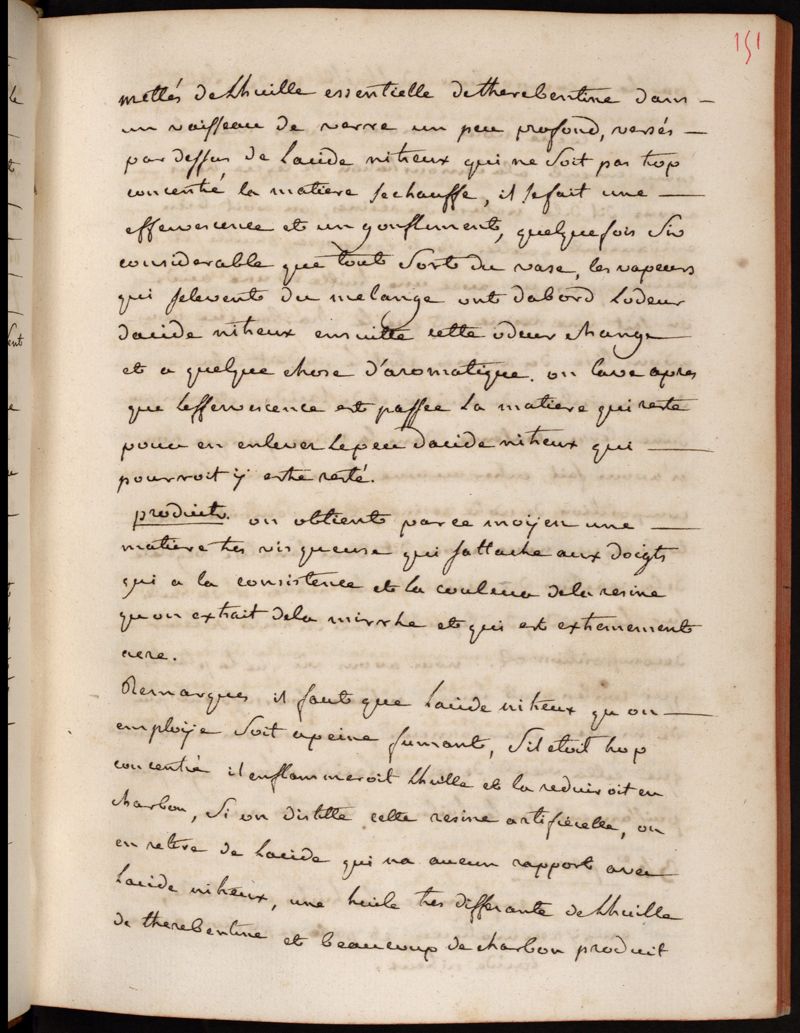 151
mettés de Lhuille essentielle de therebentine dans —
un vaisseau de verre un peu profond, versés —
par dessus de Lacide nitreux qui ne Soit pas trop
concentré la matiere sechauffe, il se fait une —
effervescence et un gonflement, quelquefois Si
considerable que tout Sort du vase, les vapeurs
qui selevent du melange ont dabord Lodeur
dacide nitreux ensuitte cette odeur change
et a quelque chose d'aromatique. on lave apres
que Leffervescence est passée La matiere qui reste
pour en enlever Le peu dacide nitreux qui —
pourroit ÿ estre resté.
produit. on obtient par ce moÿen une —
matiere tres visqueuse qui sattache aux doigts
qui a la consistence et la couleur de la resine
qu on extrait de la mirrhe et qui est extremement
acre.
Remarques il faut que Lacide nitreux qu on —
emploÿe Soit apeine fumant, S'il etoit trop
concentré il enflammeroit Lhuille et la reduiroit en
charbon, Si on distille cette resine artificielle, on
en retire de Lacide qui na aucun rapport avec
Lacide nitreux, une huile tres differante de Lhuille
de therebentine et beaucoup de charbon produit